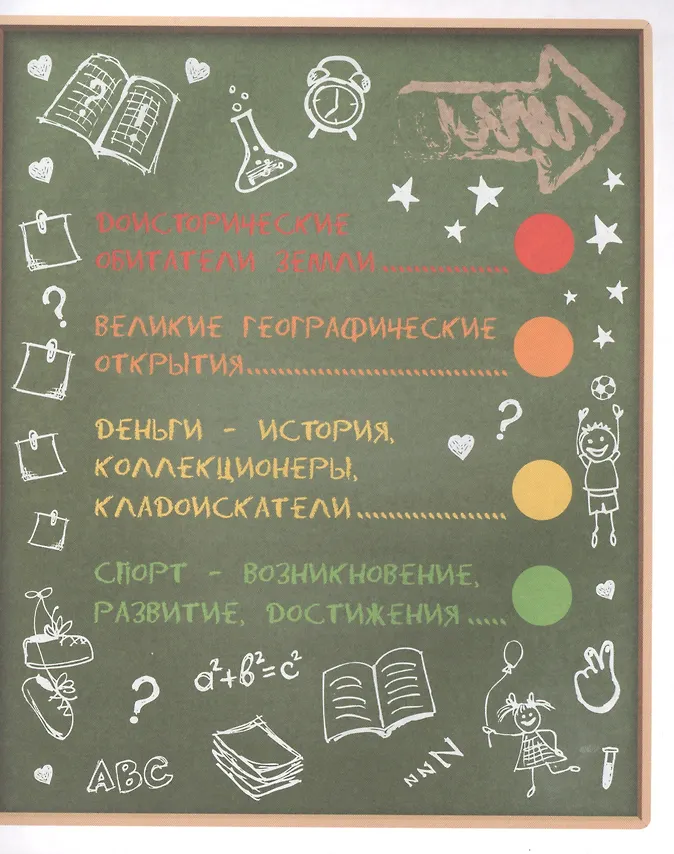 ? !
ДОИСТОРИЧЕСКИЕ
ОБИТАТЕЛИ ЗЕМЛИ................
?
ВЕЛИКИЕ ГЕОГРАФИЧЕСКИЕ
ОТКРЫТИЯ................................
?
ДЕНЬГИ - ИСТОРИЯ,
КОЛЛЕКЦИОНЕРЫ,
КЛАДОИСКАТЕЛИ...................
СПОРТ - ВОЗНИКНОВЕНИЕ,
РАЗВИТИЕ, ДОСТИЖЕНИЯ.....
a²+b²=c²
?
NNNN
ABC